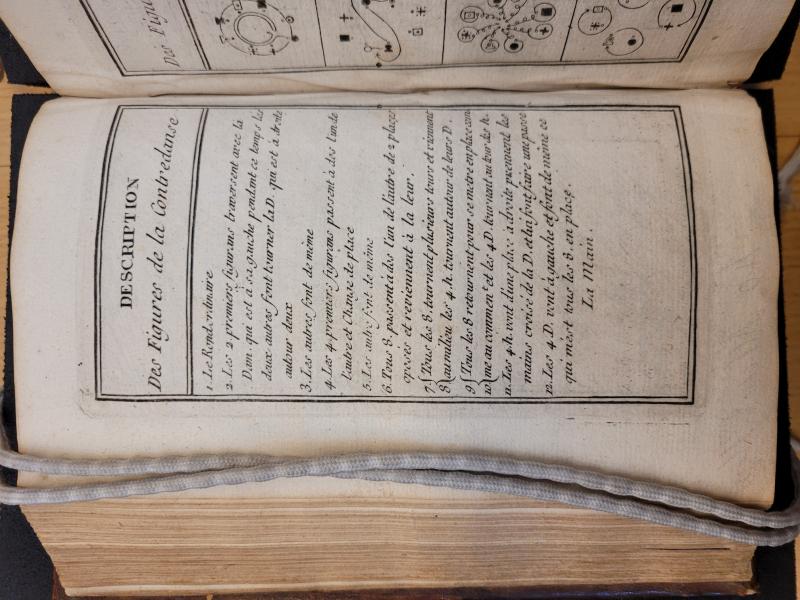 Des Figu
DESCRIPTION
Des Figures de la Contredanse
1. Le Rond ordinaire
2. Les 2 premiers figurans traversent avec la
Dam. qui est a sa gauche pendant ce temps les
deux autres font tourner la D. qui est à droite
autour deux
3. Les autres font de même
4. Les 4 premiers figurans passent à dos l'un de
l'autre et Change de place
5. Les autre font de même
6. Tous 8. passent à dos l'un de l'autre de 2 places
oposés et reviennent à la leur.
7 Tous les 8. tournent plusieurs tours et viennent
8 au milieu les 4. h. tournent autour de leurs D.
9 Tous les 8 retournent pour se metre en place com
10 me au commenᵗ et les 4 D. tournent autour des h.
11. Les 4 h. vont dune place à droite prennent les
mains croisé de la D. et lui font faire une passe
12. Les 4 D. vont à gauche et font de même ce
qui met tous les 8. en place.
La Main.